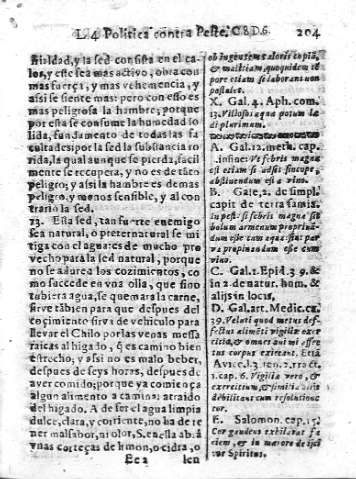 L. 4 Politica contra Peste, C. 8 D. 6. 204
mildad, y la sed consista en el ca
lor, y este sea mas activo, obra con
mas fuerça, y mas vehemencia, y
assi se siente mas: pero con esso es
mas peligrosa la hambre; porque
por esta se consume la humedad so
lida, fundamento de todas las fa
cultades: por la sed la substancia ro
rida, la qual aunque se pierda, facil
mente se recupera, y no es de tãto
peligro; y assi la hambre es de mas
peligro, y menos sensible, y al con
trario la sed.
23. Esta sed, tan fuerte enemigo
sea natural, o preternatural se mi
tiga con el agua: es de mucho pro
vecho para la sed natural, porque
no se adurea los cozimientos, co
mo succede en vna olla, que sino
tubiera agua, se quemara la carne,
sirve tãbien para que despues del
cozimiento sirva de vehiculo para
llevar el Chilo por las venas messa
raicas al higado, q̃ es camino bien
estrecho; y assi no es malo beber,
despues de seys horas, despues de
aver comido; porque ya comiença
algun alimento a caminar atraido
del higado. A de ser el agua limpia
dulce, clara, y corriente, no ha de te
ner mal sabor, ni olor, S. en ella abrá
vnas cortęças de limon, o cidra, o
Ec 2 len
ob ingentem caloris copiã,
& multiam, quoquidem tē
pore etiam si laborant non
postulet.
X. Gal. 4. Aph. com.
13. Villosti aqua potum læ
di plurimum.
A. Gal. 12. meth. cap.
infine: Vt febris magna
est etiam si adsit sincope,
abstinendum est a vino.
B. Gale, 2. de simpl.
capit de terra samia.
In pesti si febris magna sit
bolum armenum propinã-
dum est cum aqua: sint par
va propinandum est cum
vino.
C. Gal. 1. Epid. 39. &
in 2. de natur. hum. &
alijs in locis.
D. Gal. art. Medic. ca.
39. Veluti quod metus de-
fectus alimēti vigiliæ exer
citia, & omnes animi affe
ctus corpus exicant. Etiã
1. cap. 6. Vigiliæ vero, &
debilitant cum resolutione
E. Salomon. cap. 15.
Cor gaudens exhilarat fa
ciem, & in mærore deijci
tur Spiritus.